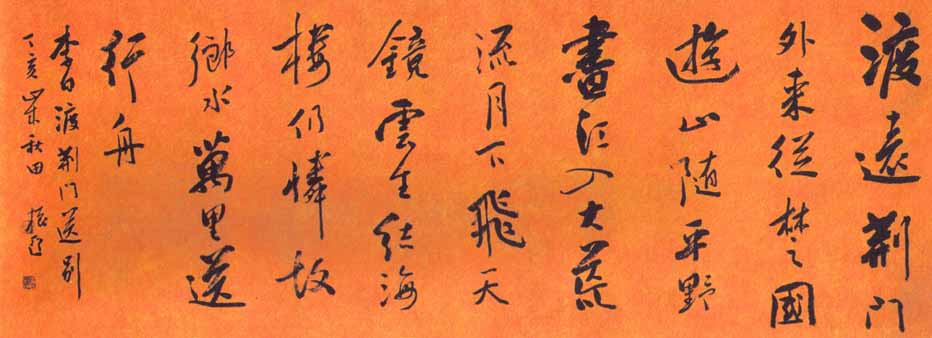 渡遠荆门
外来從楚國
遊山随平野
畫江入大荒
流月下飛天
鏡雲生结海
楼仍憐故
鄉水萬里送
行舟
李白渡荆门送别
丁亥秋田